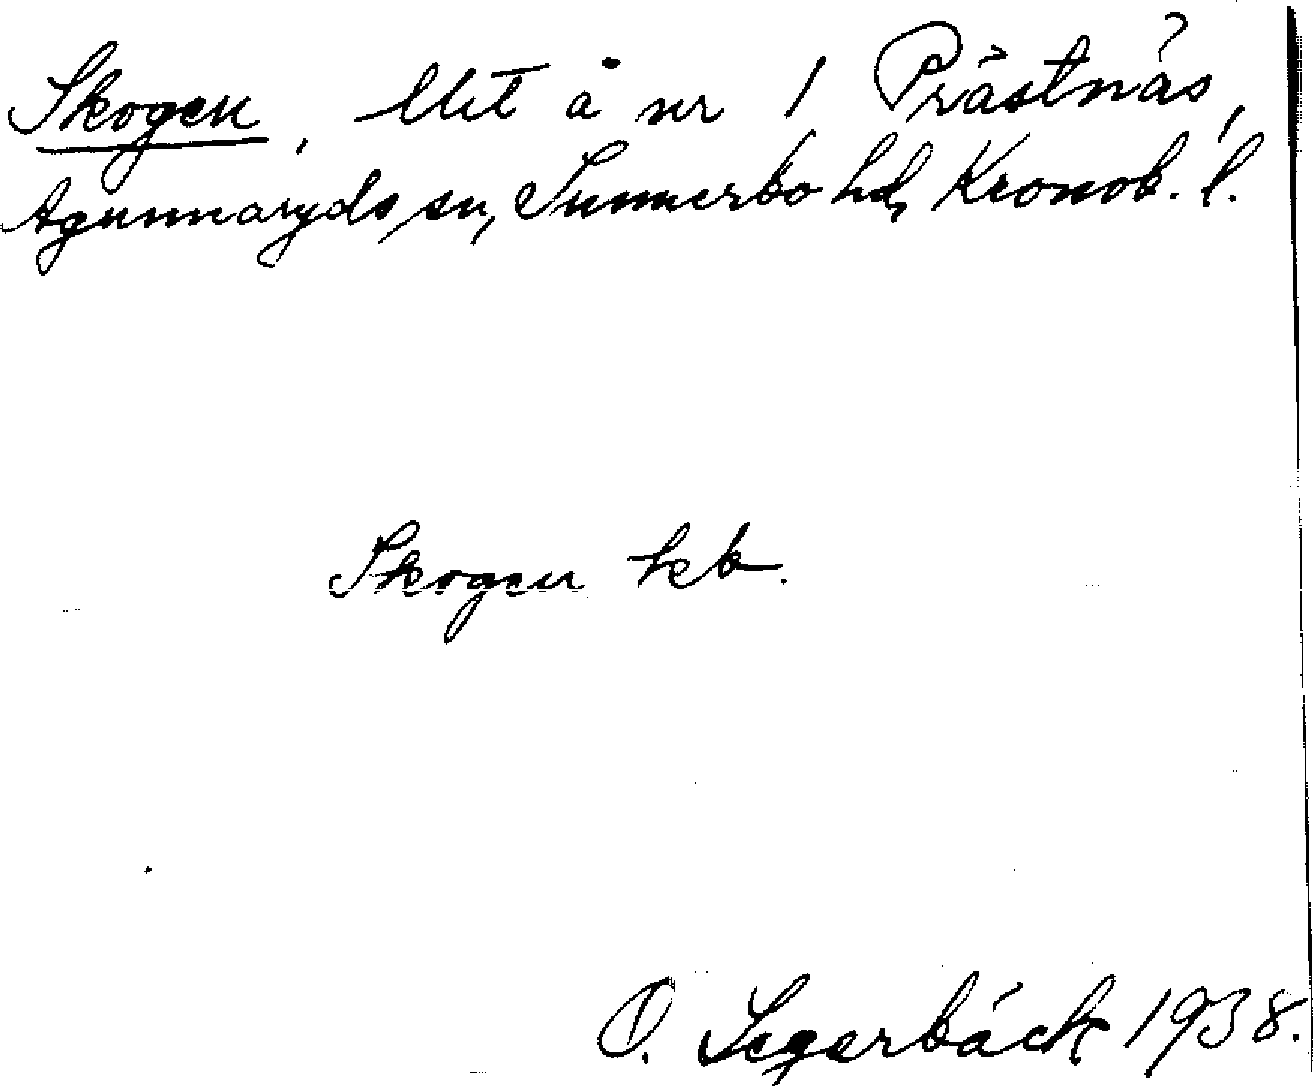 Skogen, Utt å nr 1 Prästnäs,
Agunnaryds sn, Sunnerbo hd, Kronob. l.
Skogen kb.
O. Segerbäck 1938.